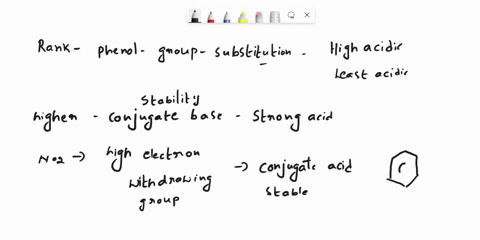 Rank- phenol- group- substitution. High acidic
Least acidic
Stability
higher - conjugate base - strong acid
NO2 → high electron withdrawing group → conjugate acid stable